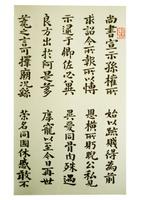 尚書宣示孫權所
求詔令所報所以博
示逮于卿佐必冀
良方出於阿是芻
蕘之言可擇廟況繇
始以疏賤得為前
恩橫所盻睨公私見
異愛同骨肉殊遇
厚寵以至今日再世
榮名同國休慼敢不